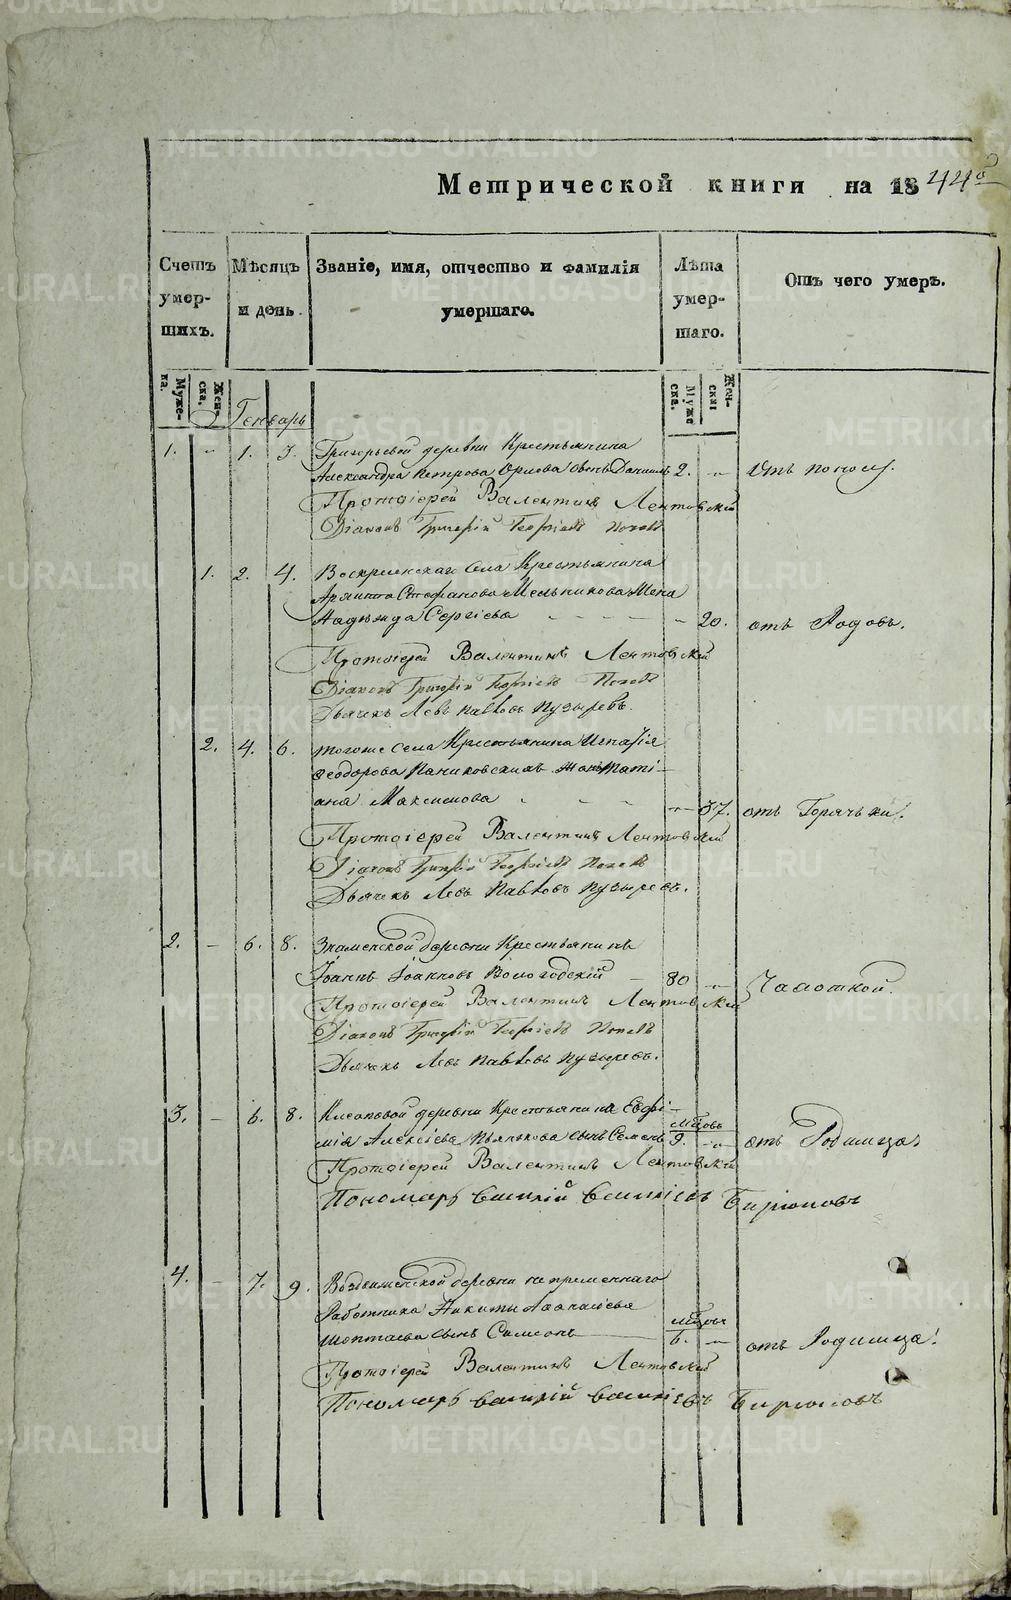 Метрической книги на 1844й
Счетъ умершихъ.
Мѣсяцъ и день.
Званіе, имя, отчество и фамилія умершаго.
Лѣта умершаго.
Отъ чего умеръ.
Мужеска.
Женска.
Генварь
Мужеска.
Женски
1. - 1. 3. Григорьевой деревни Крестьянина
Александра Петрова Орлова сынъ Даніилъ 2. - Отъ поносу.
Протоіерей Валентинъ Лентовскій
Діаконъ Григорій Георгіевъ Поповъ
1. 2. 4. Воскресенскаго села Крестьянина
Стефанова Мельникова Жена
Надежда Сергіева - 20. отъ Родовъ.
Протоіерей Валентинъ Лентовскій
Діаконъ Григорій Георгіевъ Поповъ
Дьячекъ Левъ Павловъ Пузыревъ.
2. 4. 6. тогоже села Крестьянина Игнатія
Ѳеодорова Паниковскихъ жена Таті-
ана Максимова - 37. отъ Горячьки.
Протоіерей Валентинъ Лентовскій
Діаконъ Григорій Георгіевъ Поповъ
Дьячекъ Левъ Павловъ Пузыревъ.
2. - 6. 8. Знаменской деревни Крестьянинъ
Іоаннъ Іоанновъ Вологодскій - 80 - Чахоткой.
Протоіерей Валентинъ Лентовскій
Діаконъ Григорій Георгіевъ Поповъ
Дьячекъ Левъ Павловъ Пузыревъ.
3. - 6. 8. деревни Крестьянина Евфи-
мія Алексіева сынъ Семенъ мѣцовъ 9. - отъ Родимца
Протоіерей Валентинъ Лентовскій
Пономарь Василій Василіевъ Бирюковъ
4. - 7. 9. Воздвиженской деревни непременнаго
Работника Никиты Аѳанасіева
сынъ Симеонъ мѣцовъ 6. - отъ Родимца.
Протоіерей Валентинъ Лентовскій
Пономарь Василій Василіевъ Бирюковъ
METRIKI.GASO-URAL.RU